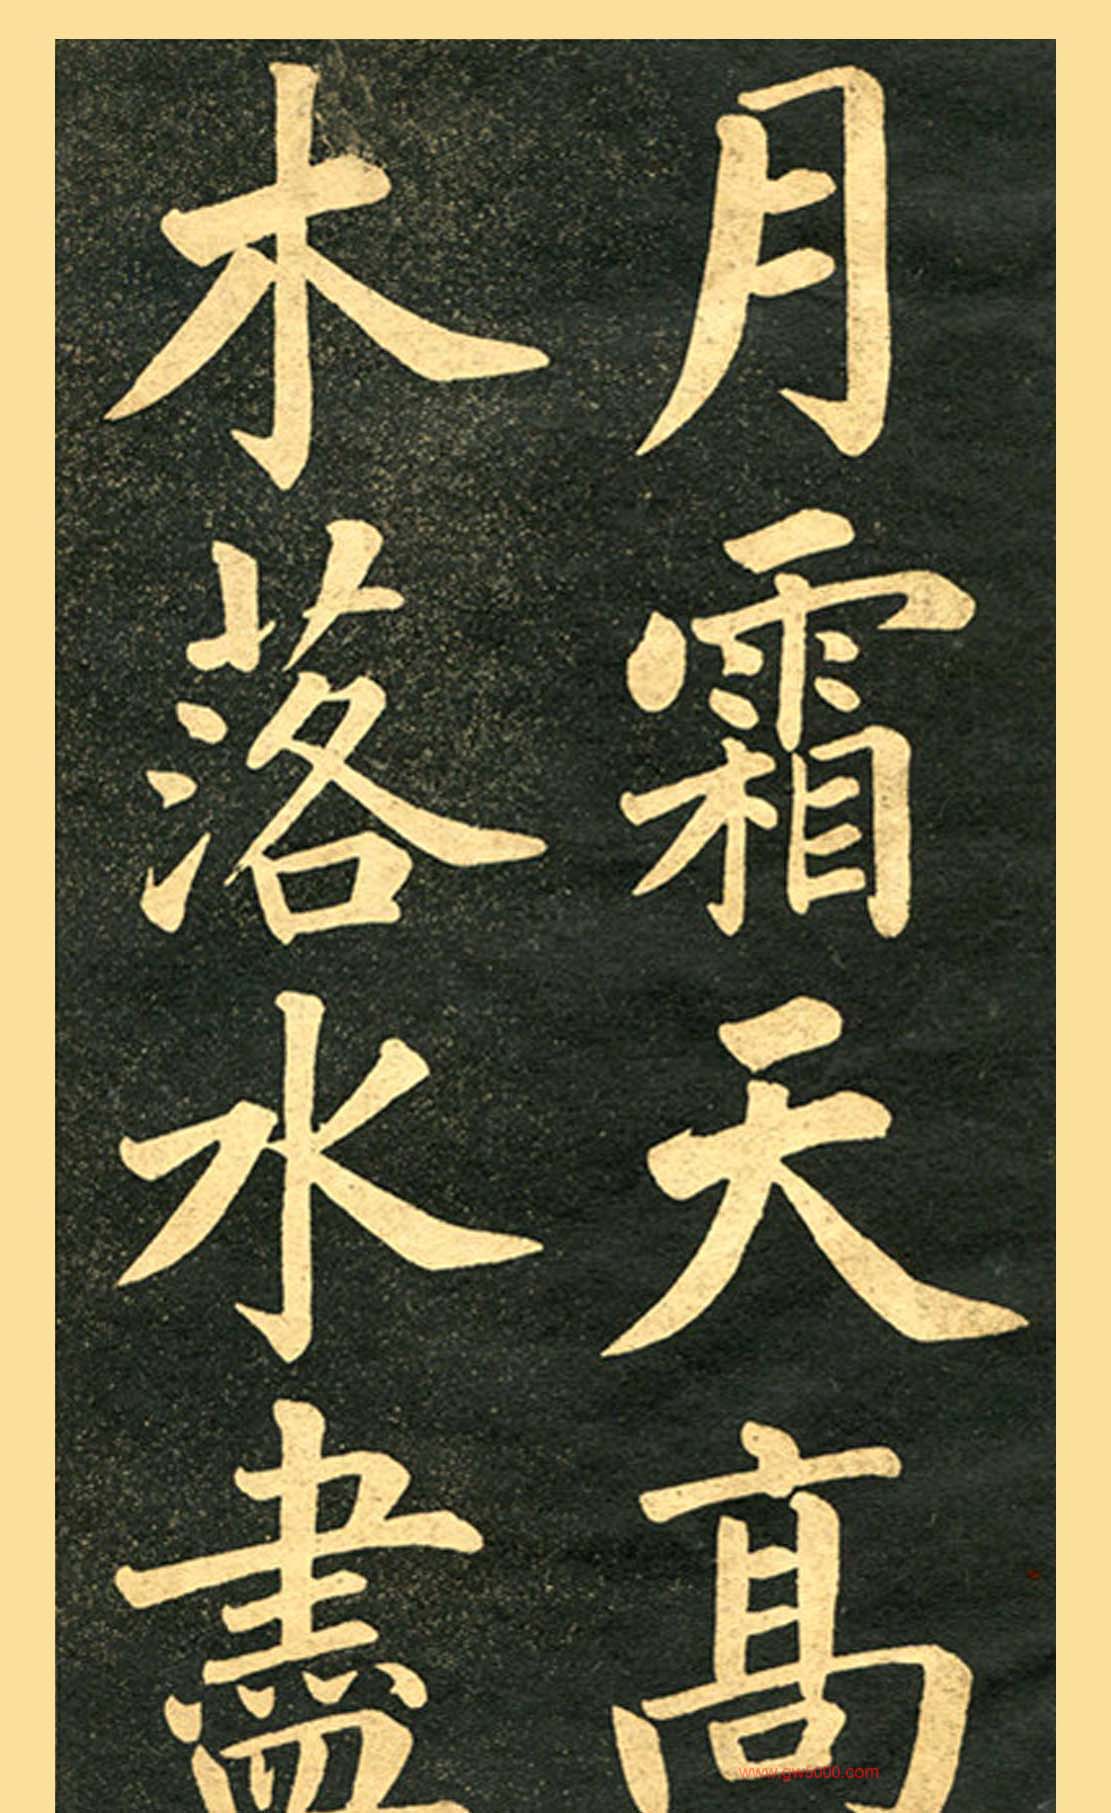 月霜天髙
木落水盡
www.gw5000.com